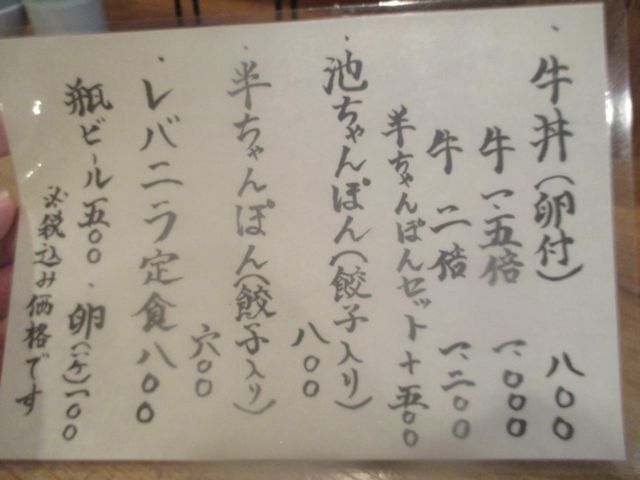 ・牛丼(卵付) 八〇〇
牛一、五倍 一、〇〇〇
牛二倍 一、二〇〇
半ちゃんぽんセット+五〇〇
・池ちゃんぽん(餃子入り) 八〇〇
・半ちゃんぽん(餃子入り) 六〇〇
・レバニラ定食 八〇〇
瓶ビール五〇〇・卵(一ヶ)一〇〇
※税込み価格です